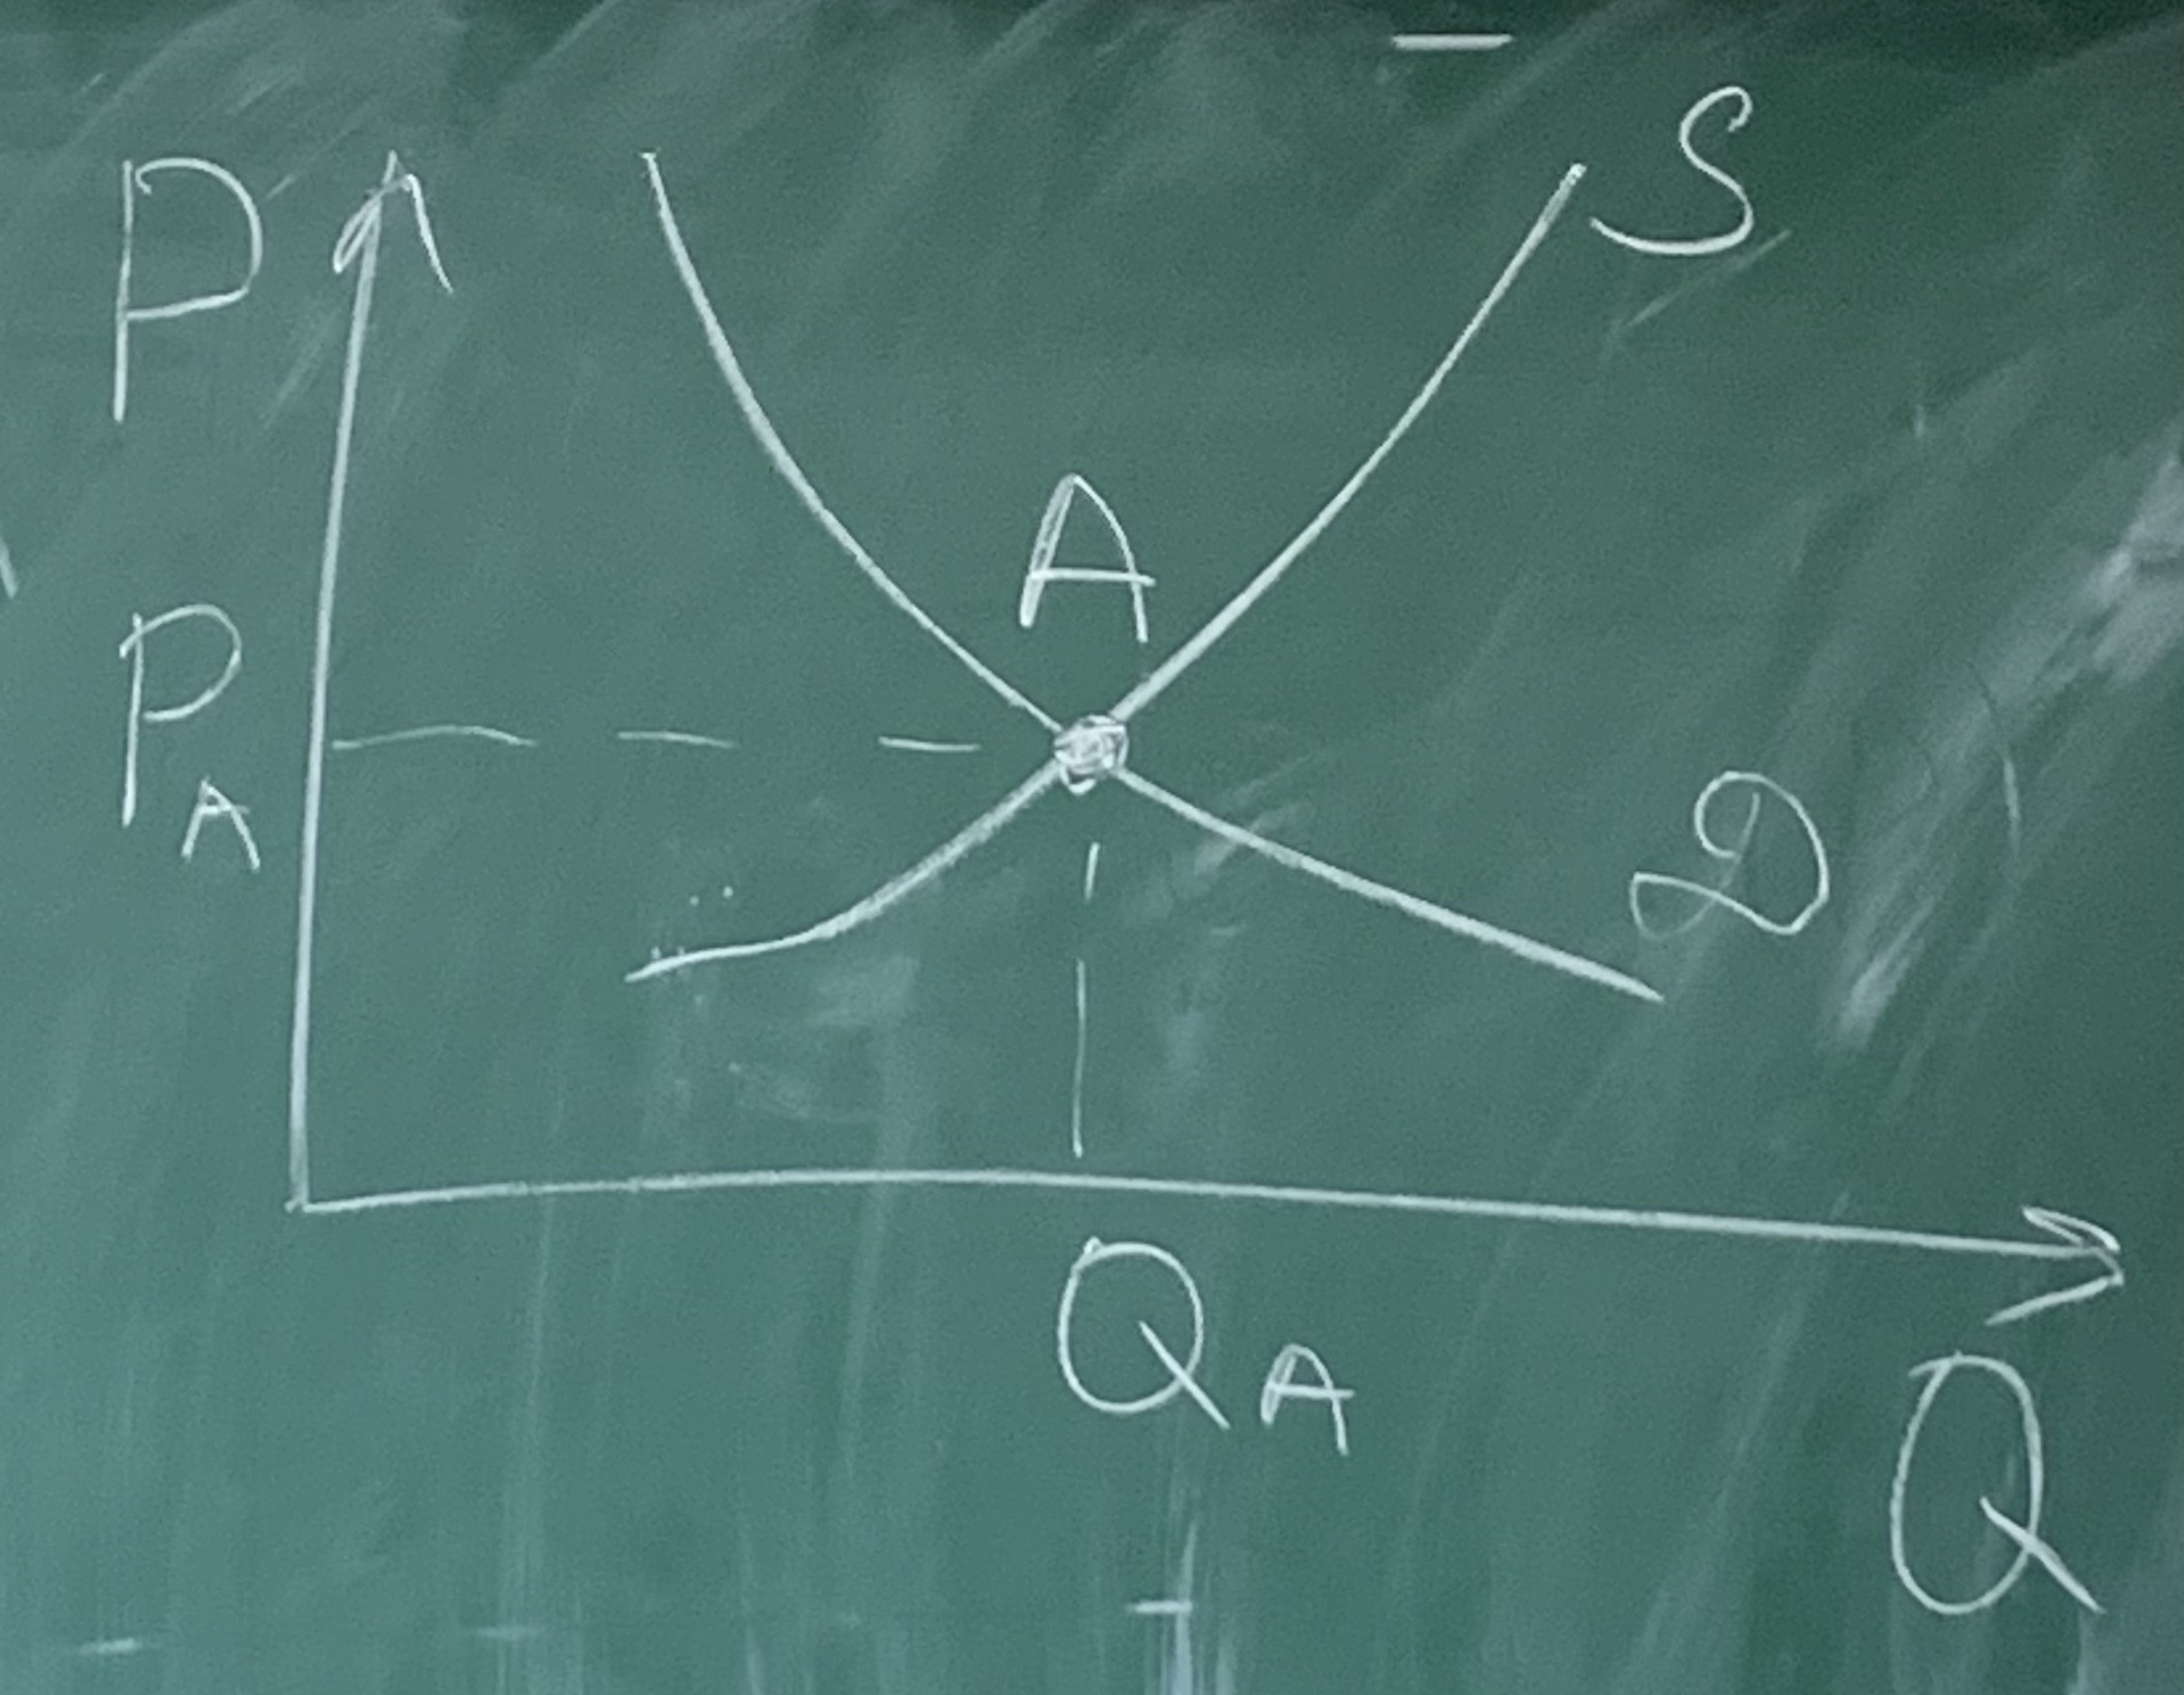 P
S
A
P_A
D
Q_A
Q